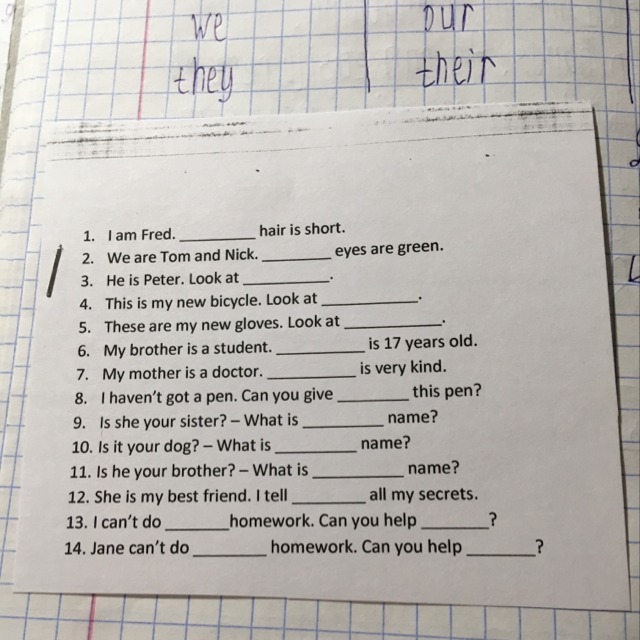 we our
they their
1. I am Fred. __________ hair is short.
2. We are Tom and Nick. _________ eyes are green.
3. He is Peter. Look at ___________.
4. This is my new bicycle. Look at ____________.
5. These are my new gloves. Look at ____________.
6. My brother is a student. ___________ is 17 years old.
7. My mother is a doctor. ___________ is very kind.
8. I haven't got a pen. Can you give _________ this pen?
9. Is she your sister? – What is __________ name?
10. Is it your dog? – What is __________ name?
11. Is he your brother? – What is ___________ name?
12. She is my best friend. I tell _________ all my secrets.
13. I can't do ________homework. Can you help ________?
14. Jane can't do _________ homework. Can you help ________?